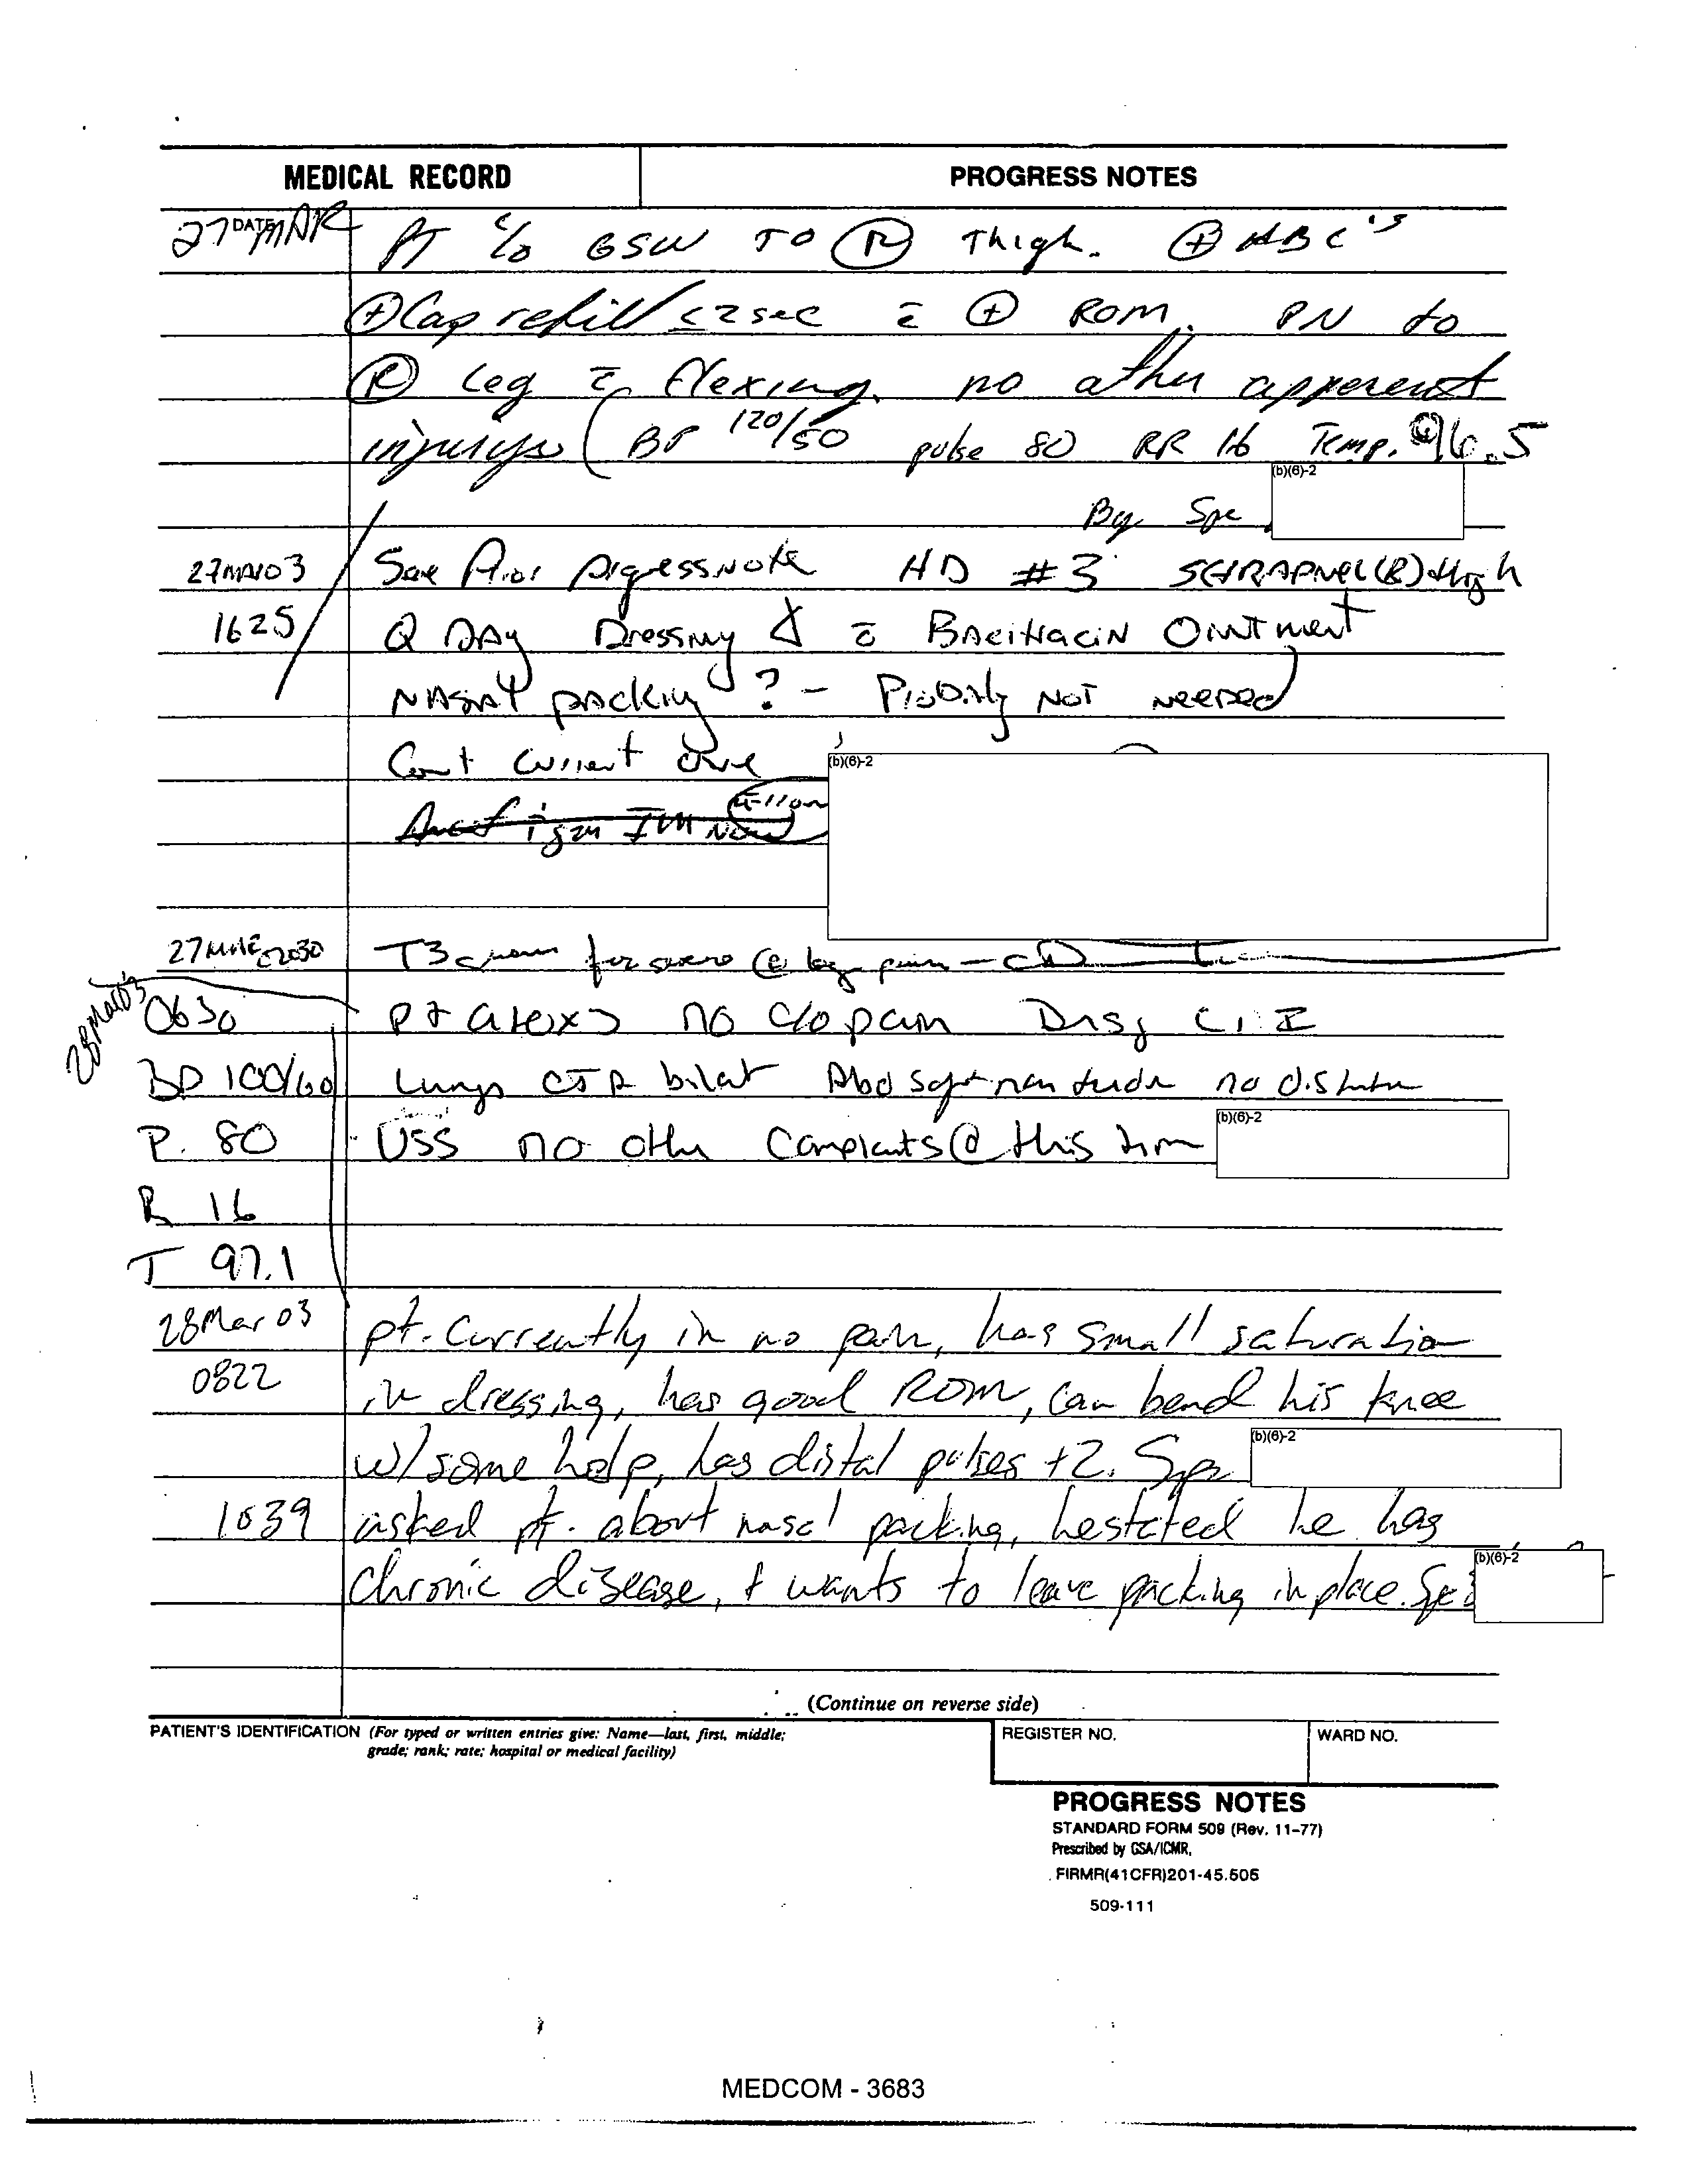 MEDICAL RECORD
PROGRESS NOTES
DATE
27 MAR
PT c/o GSW TO (R) Thigh. (+) ABC's
(+) Cap refill/ ≤2sec c̄ (+) ROM. PN to
(R) Leg c̄ flexing. no other apperent
injurys (BP 120/50 pulse 80 RR 16 Temp. 96.5
(b)(6)-2
By Spc
27MAR03
See Prior Prgessnote HD #3 SCHRAPNEL (R) thigh
1625
Q DAY Dressing c̄ BACITRACIN OINTMENT
NASAL packing? - Probably NOT NEEDED
Cont current care
(b)(6)-2
Ancef 1gm IM Now
27MAR 2030
T3 for leg pain
28Mar03
0630
pt no c/o pain Drsg C, I
BP 100/60
Lungs CTA bilat Abd soft non no
P. 80
VSS no other Complaints @ this time
(b)(6)-2
R 16
T 97.1
28Mar 03
pt. Currently in no pain, has small saturation
0822
in dressing, has good ROM, can bend his knee
w/some help, has distal pulses +2. Spc
(b)(6)-2
1039
asked pt. about nasal packing, he stated he has
chronic disease, + wants to leave packing in place. Spc
(b)(6)-2
(Continue on reverse side)
PATIENT'S IDENTIFICATION (For typed or written entries give: Name—last, first, middle;
grade; rank; rate; hospital or medical facility)
REGISTER NO.
WARD NO.
PROGRESS NOTES
STANDARD FORM 509 (Rev. 11-77)
Prescribed by GSA/ICMR,
FIRMR(41CFR)201-45.505
509-111
MEDCOM - 3683